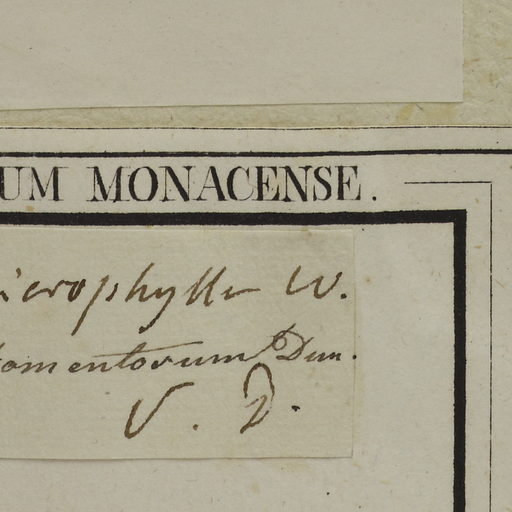 UM MONACENSE.
icrophylla W.
tomentosum Dun.
V. D.